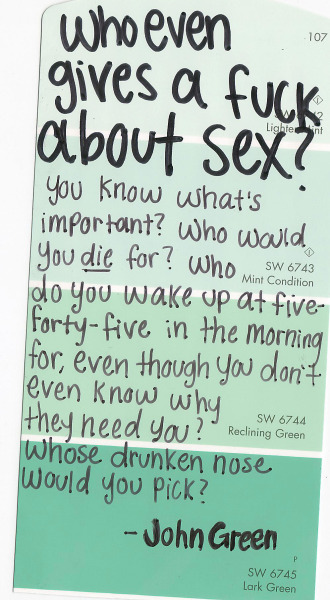 who even
107
gives a fuck
Lighte
about sex?
you know what's
important? who would
you die for? who
SW 6743
Mint Condition
do you wake up at five-
forty-five in the morning
for, even though you don't
even know why
they need you?
SW 6744
Reclining Green
whose drunken nose
would you pick?
- John Green
P
SW 6745
Lark Green